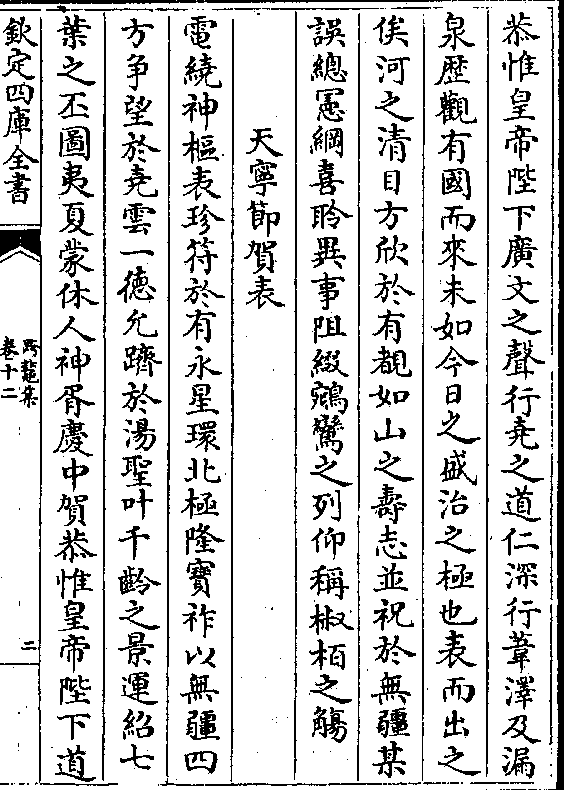 恭惟皇帝陛下廣文之聲行堯之道仁深行葦澤及漏
泉歴觀有國而來未如今日之盛治之極也表而出之
俟河之清目方欣於有覩如山之壽志並祝於無疆某
誤總憲綱喜聆異事阻綴鵷鷺之列仰稱椒栢之觴
天寧節賀表
電繞神樞表珍符於有永星環北極隆寶祚以無疆四
方争望於堯雲一德允躋於湯聖叶千齡之景運紹七
葉之丕圖夷夏蒙休人神胥慶中賀恭惟皇帝陛下道
欽定四庫全書
跨鼇集
卷十二
二